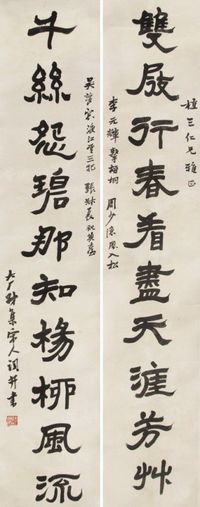 植三仁兄雅正
雙屐行春看盡天涯芳艸
李元輝擊梧桐 周少隱風入松
吳夢窗渡江雲三犯 張叔夏祝英臺
千絲怨碧那知楊柳風流
大厂孺集宋人詞并書